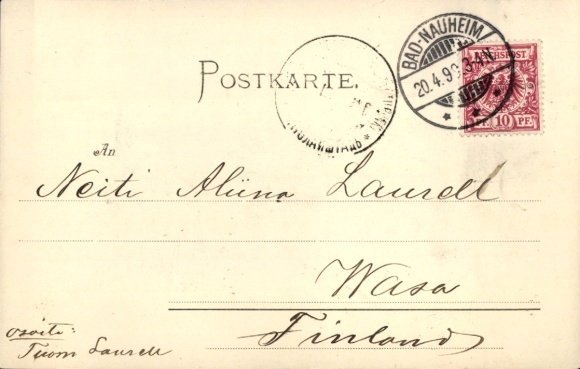 BAD-NAUHEIM
20.4.99 3-4N.
REICHSPOST
10 PF.
POSTKARTE.
An
Neiti Aliina Laurell
Wasa
Finland
osoite:
Tuom Laurell